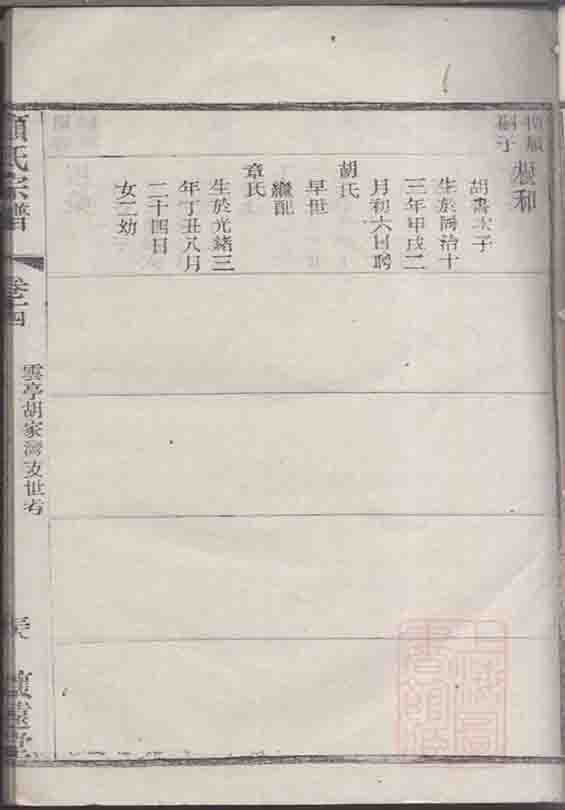 胡壽次子
生於同治十
三年甲戌二
月初六日聘
胡氏
早世
繼配
章氏
生於光緒三
年丁丑八月
二十四日
女二幼
氏宗譜
卷十四
雲亭胡家灣支世考